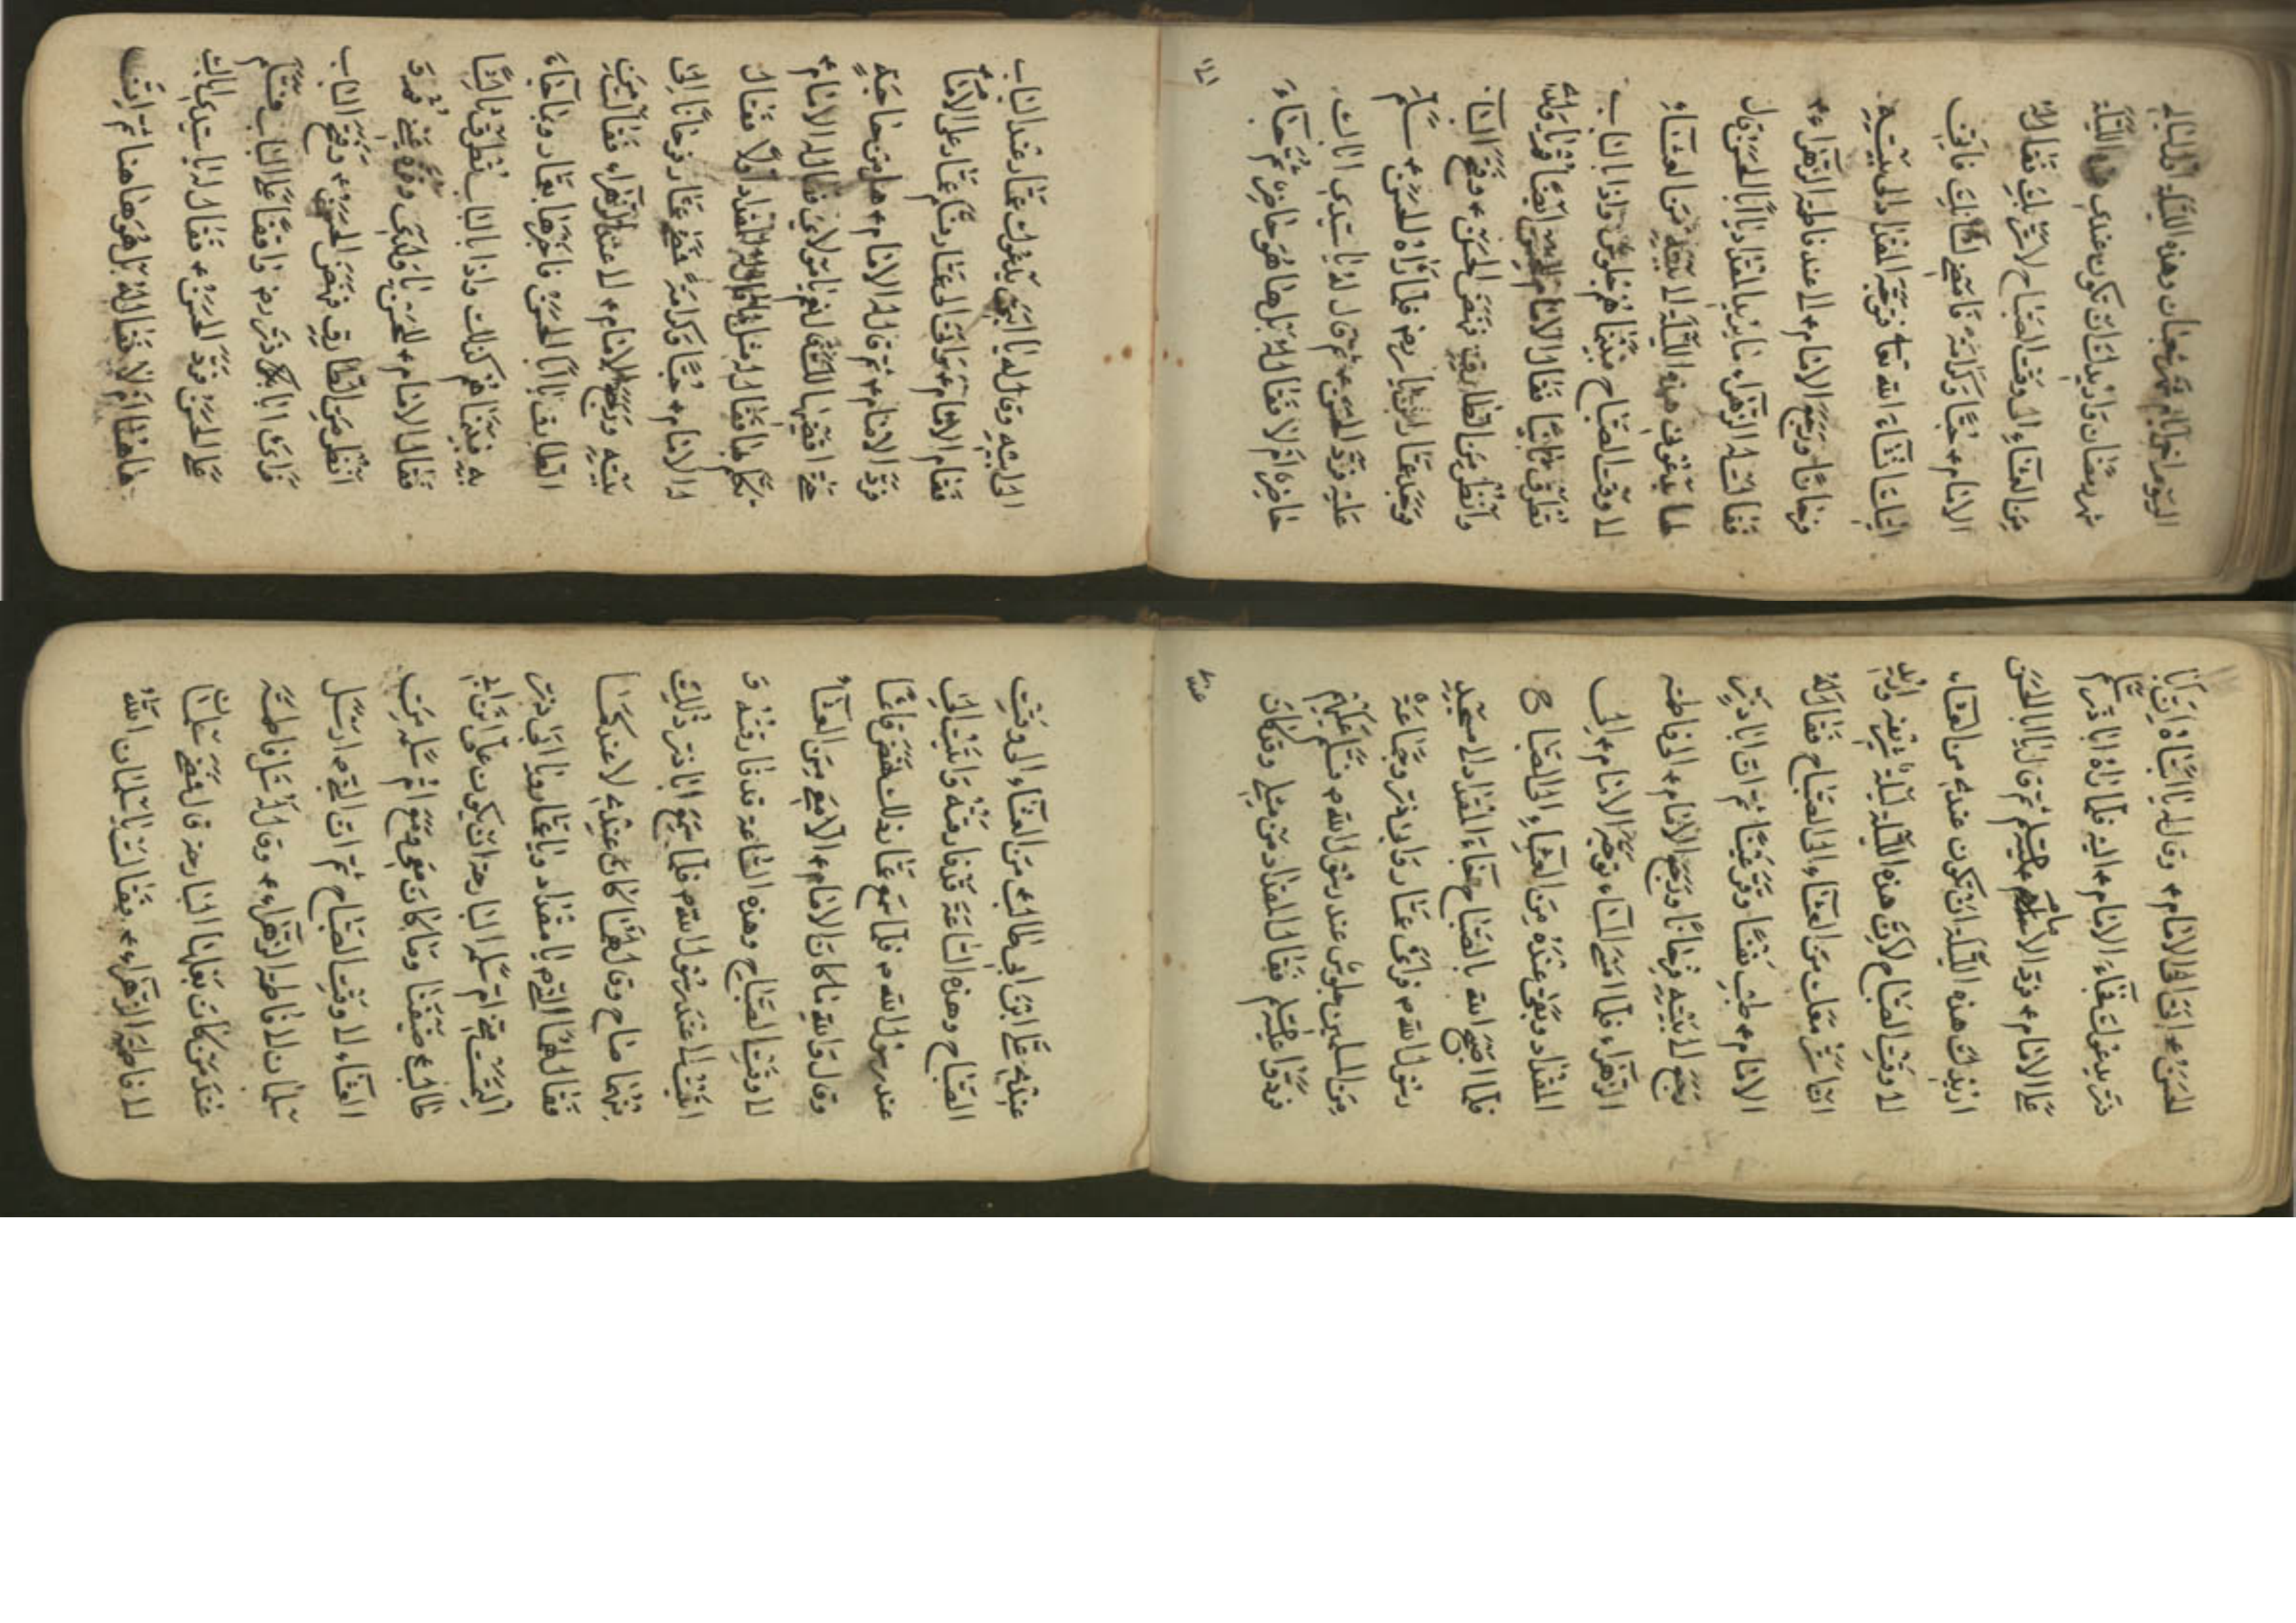 اليوم اخر ايام شهر شعبان وهذه الليلة اول ليالي
شهر رمضان واريد انك تكون عندي هذه الليلة
من العشاء الى وقت الصباح لاسر بك فقال له
الامام ء حبًا وكرامة فامض لشانك فاني
اتيك انشاء الله تعا فتوجه المقداد الى بيته
فرحانًا ورجع الامام ء الى عند فاطمة الزهراء ء
فقالت له الزهراء ما يريد المقداد يا ابا الحسن قال
لها يدعوني هذه الليلة الى بيته من العشاء
الى وقت الصباح فبينما هم جلوس واذا بالباب
تطرق ثانيًا فقال الامام للحسن ايضًا قم يا ولدي
وانظر من الطارق فنهض الحسن ء وفتح الباب
فوجد عمار ابن ياسر رضه فلما رآه الحسن ء سلم
عليه فرد الحسن ء ثم قال له يا سيدي اباك
حاضر ام لا فقال له بل ها هو حاضر ثم جاء
الى ابيه وقال له يا ابتي يدعوك عمار عند الباب
فقام الامام ء ووافى الى عمار فسلم عمار على الامام
فرد الامام ء ثم قال له الامام ء هل من حاجة
حتى اقضيها لك قال نعم يا مولاي فقال له الامام ء
تكلم بها فقال له مثل ما قال له المقداد اولًا فقال
له الامام ء حبًا وكرامة فمضى عمار فرحانًا الى
بيته ورجع الامام ء الى عند الزهراء فقالت من
الطارق يا ابا الحسن فاخبرها بعمار وبما جاء
به فبينما هم كذلك واذا بالباب تطرق ثالثًا
فقال الامام ء للحسن يا ولدي وقرة عيني قم و
انظر من الطارق فنهض الحسن ء وفتح الباب
فراى ابا ذر رضه واقفًا على الباب فسلم
على الحسن فرد الحسن ء فقال له يا سيدي اباك
هاهنا ام لا فقال له بل هو هاهنا ثم اتى
الحسن ء اتى الى الامام ء وقال له يا ابتاه ان ابا
ذر يدعوك فجاء الامام ء اليه فلما رآه ابا ذر سلم
على الامام ء فرد الامام ء عليه السلم ثم قال يا ابا الحسن
اريد انك هذه الليلة ان تكون عندي من العشاء
الى وقت الصباح لان هذه الليلة ليلة شريفه واريد
انا سر معك من العشاء الى الصباح فقال له
الامام ء طب نفسًا وقر عينًا ثم ان ابا ذر
رجع الى بيته فرحانًا ورجع الامام ء الى فاطمه
الزهراء فلما امسى المساء توجه الامام ء الى
المقداد وبقى عنده من العشاء الى الصباح
فلما اصبح الله بالصباح جاء المقداد الى مسجد
رسول الله ص فراى عمار وابا ذر وجماعة
من المسلمين جلوس عند رسول الله ص فسلم عليهم
فردوا عليه السلم فقال المقداد من مثلي وقد كان
عندي
عندي علي ابن ابي طالب ء من العشاء الى وقت
الصباح وهذه الساعة قد فارقته واتيت الى
عند رسول الله ص فلما سمع عمار ذلك نهض قائمًا
وقال والله ما كان الامام ء الا معي من العشاء
الى وقت الصباح وهذه الساعة قد فارقته و
اتيت الى عند رسول الله ص فلما سمع ابا ذر ذلك
منهما صاح وقال لهما كان عندي لا عندكما
فقال لهما النبي ص يا مقداد ويا عمار ويا ابي ذر
ام سلمه البارحة ان يكون علي ابن ابي
طالب ء ضيفنا وما كان معي ومع ام سلمه من
العشاء الى وقت الصباح ثم ان النبي ص ارسل
سلمان الى فاطمة الزهراء ء وقال له سل فاطمة
عند من كان بعلها البارحة قال فمضى سلمان
الى فاطمة الزهراء ء فقالت يا سلمان ان الله